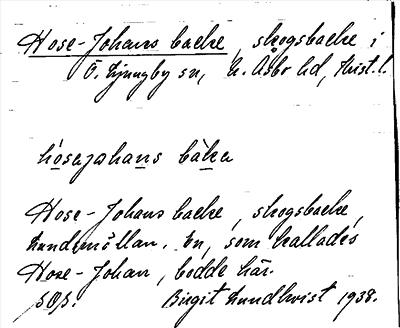 Hose-Johans backe, skogsbacke i
Ö. Ljungby sn, N. Åsbo hd, Krist. l.
hosejohans backa
Hose-Johans backe, skogsbacke,
Lundsmöllan. En, som kallades
Hose-Johan, bodde här.
Birgit Lundkvist 1938.